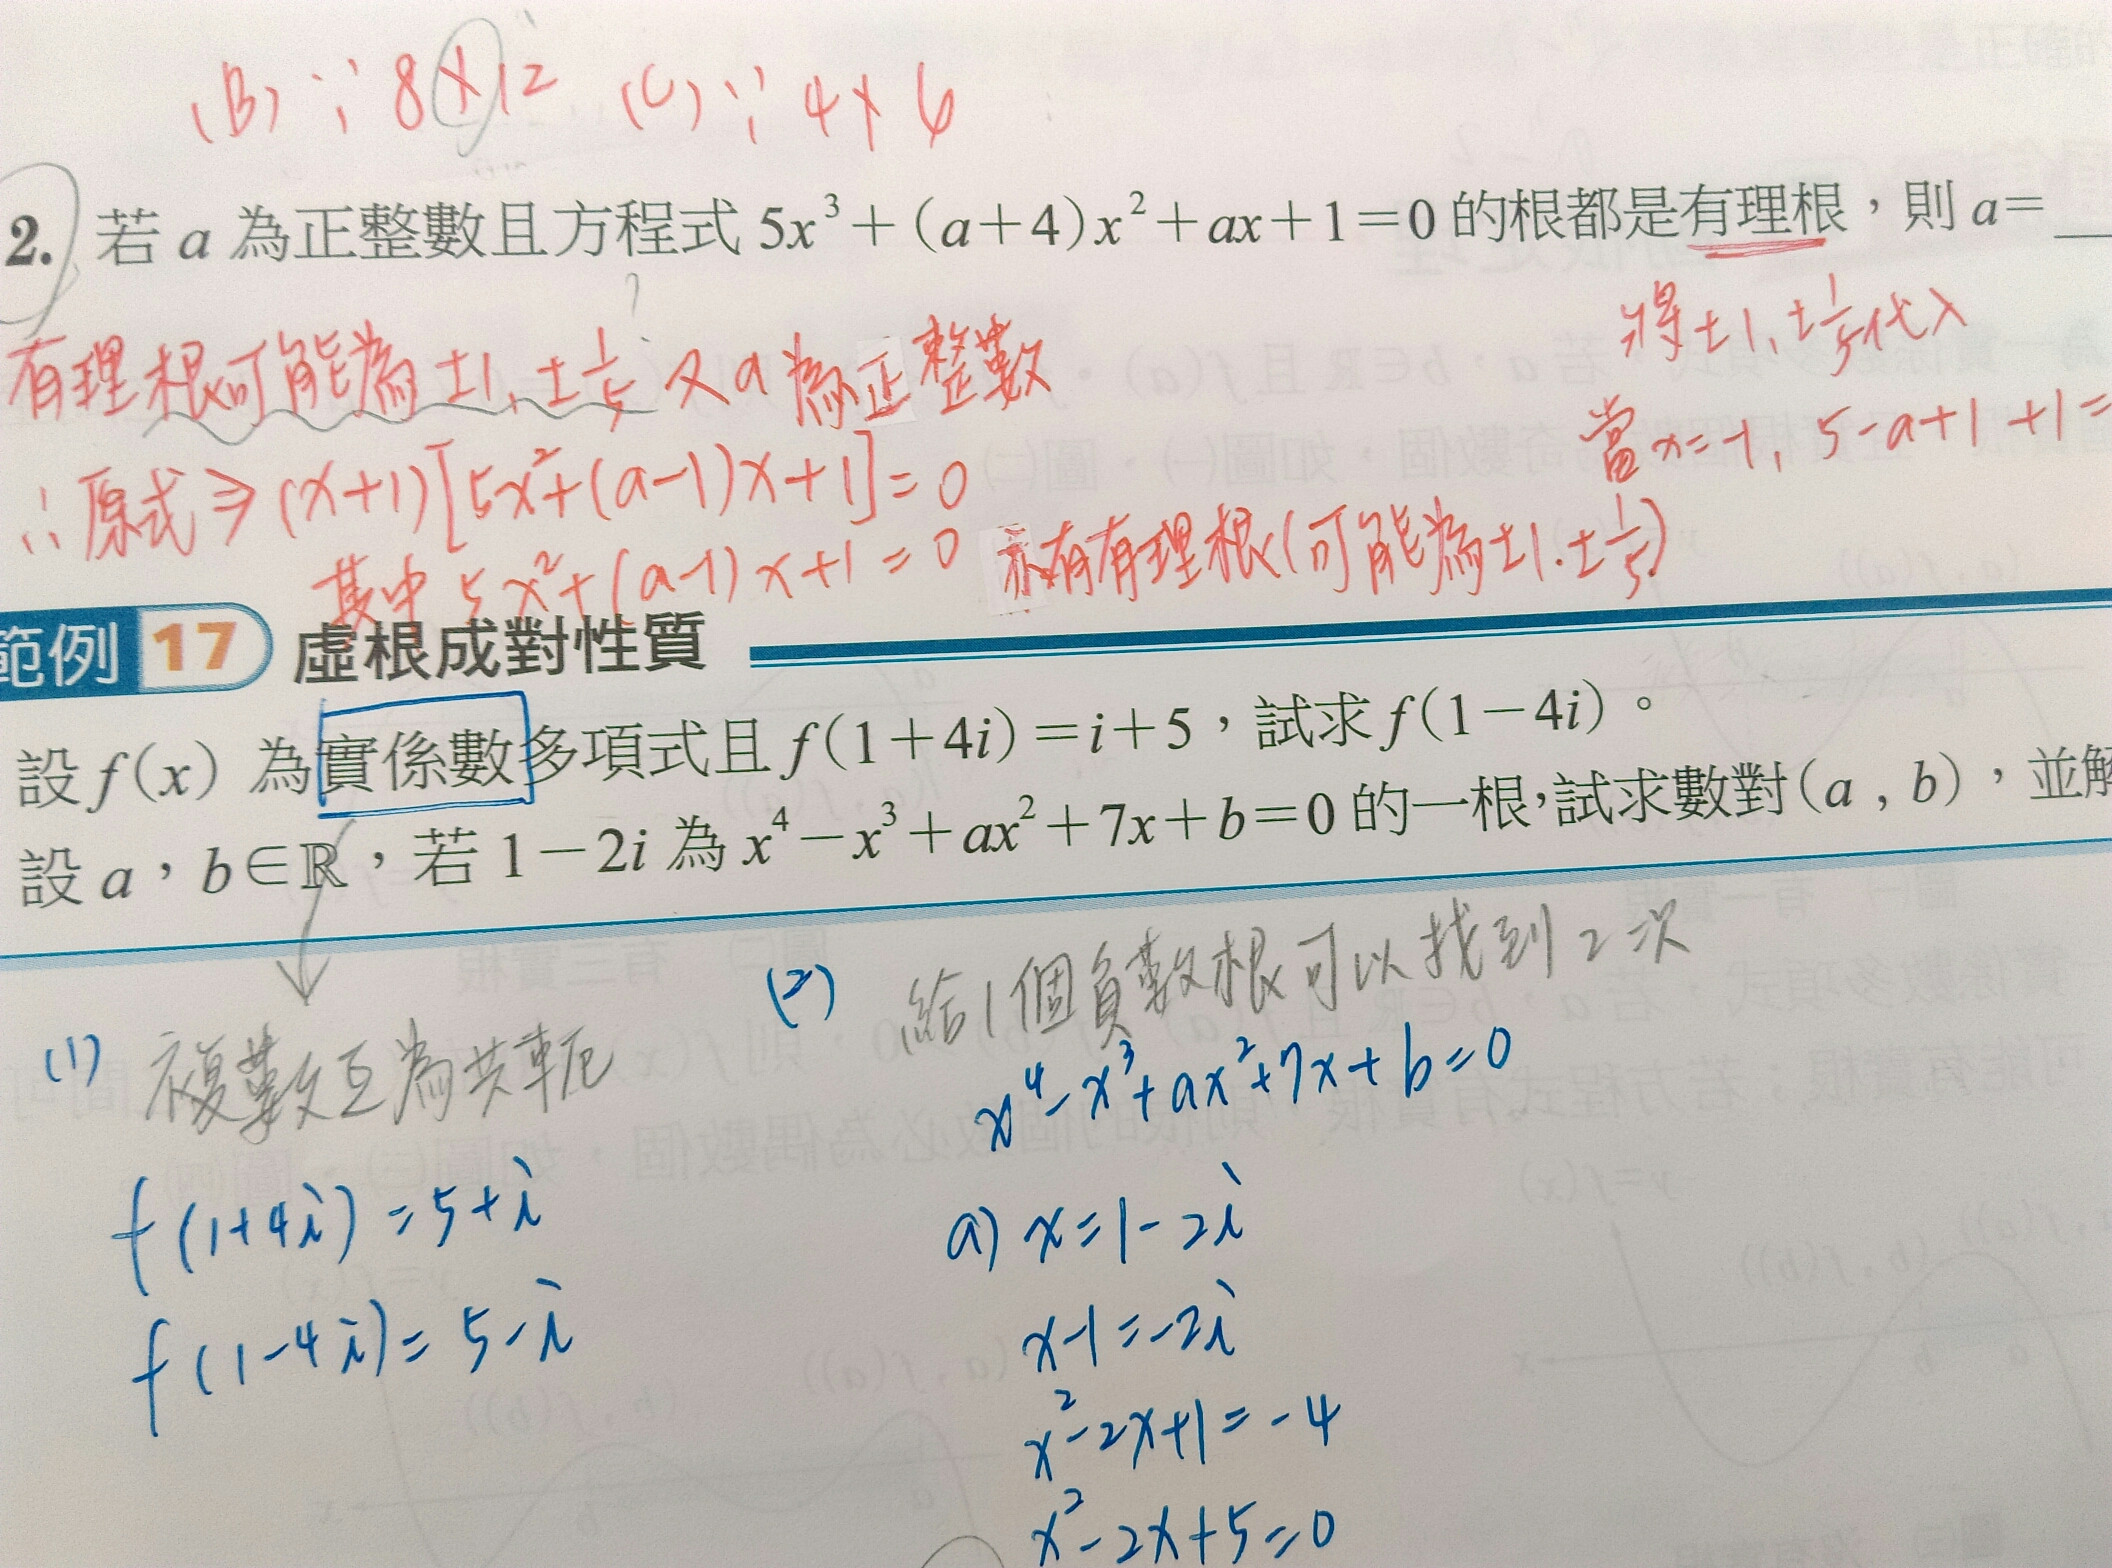 (B) ∵ 8×12 (C) ∵ 4×6
2. 若 a 為正整數且方程式 5x³+(a+4)x²+ax+1=0 的根都是有理根，則 a=__
?
將±1、±1/5代入
有理根可能為±1、±1/5 又a為正整數
當x=-1, 5-a+1+1=
∴原式⇒(x+1)[5x²+(a-1)x+1]=0
其中 5x²+(a-1)x+1=0 亦有有理根(可能為±1.±1/5)
範例 17 虛根成對性質
設 f(x) 為實係數多項式且 f(1+4i)=i+5，試求 f(1-4i)。
設 a，b∈ℝ，若 1-2i 為 x⁴-x³+ax²+7x+b=0 的一根，試求數對(a , b)，並解
(1) 複數互為共軛
f(1+4i)=5+i
f(1-4i)=5-i
(2) 給1個負數根可以找到2次
x⁴-x³+ax²+7x+b=0
a) x=1-2i
x-1=-2i
x²-2x+1=-4
x²-2x+5=0